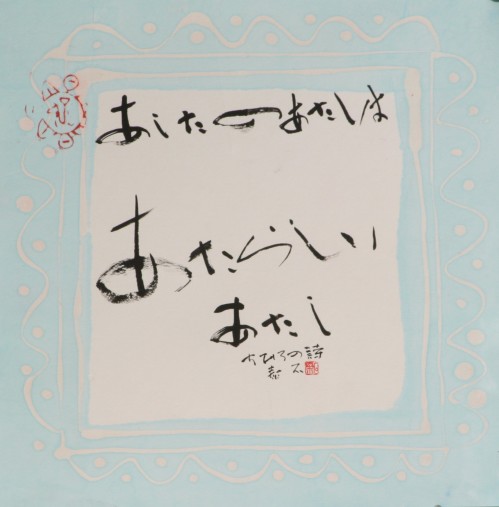 あしたのあたしは
あたらしい
あたし
やひろの詩